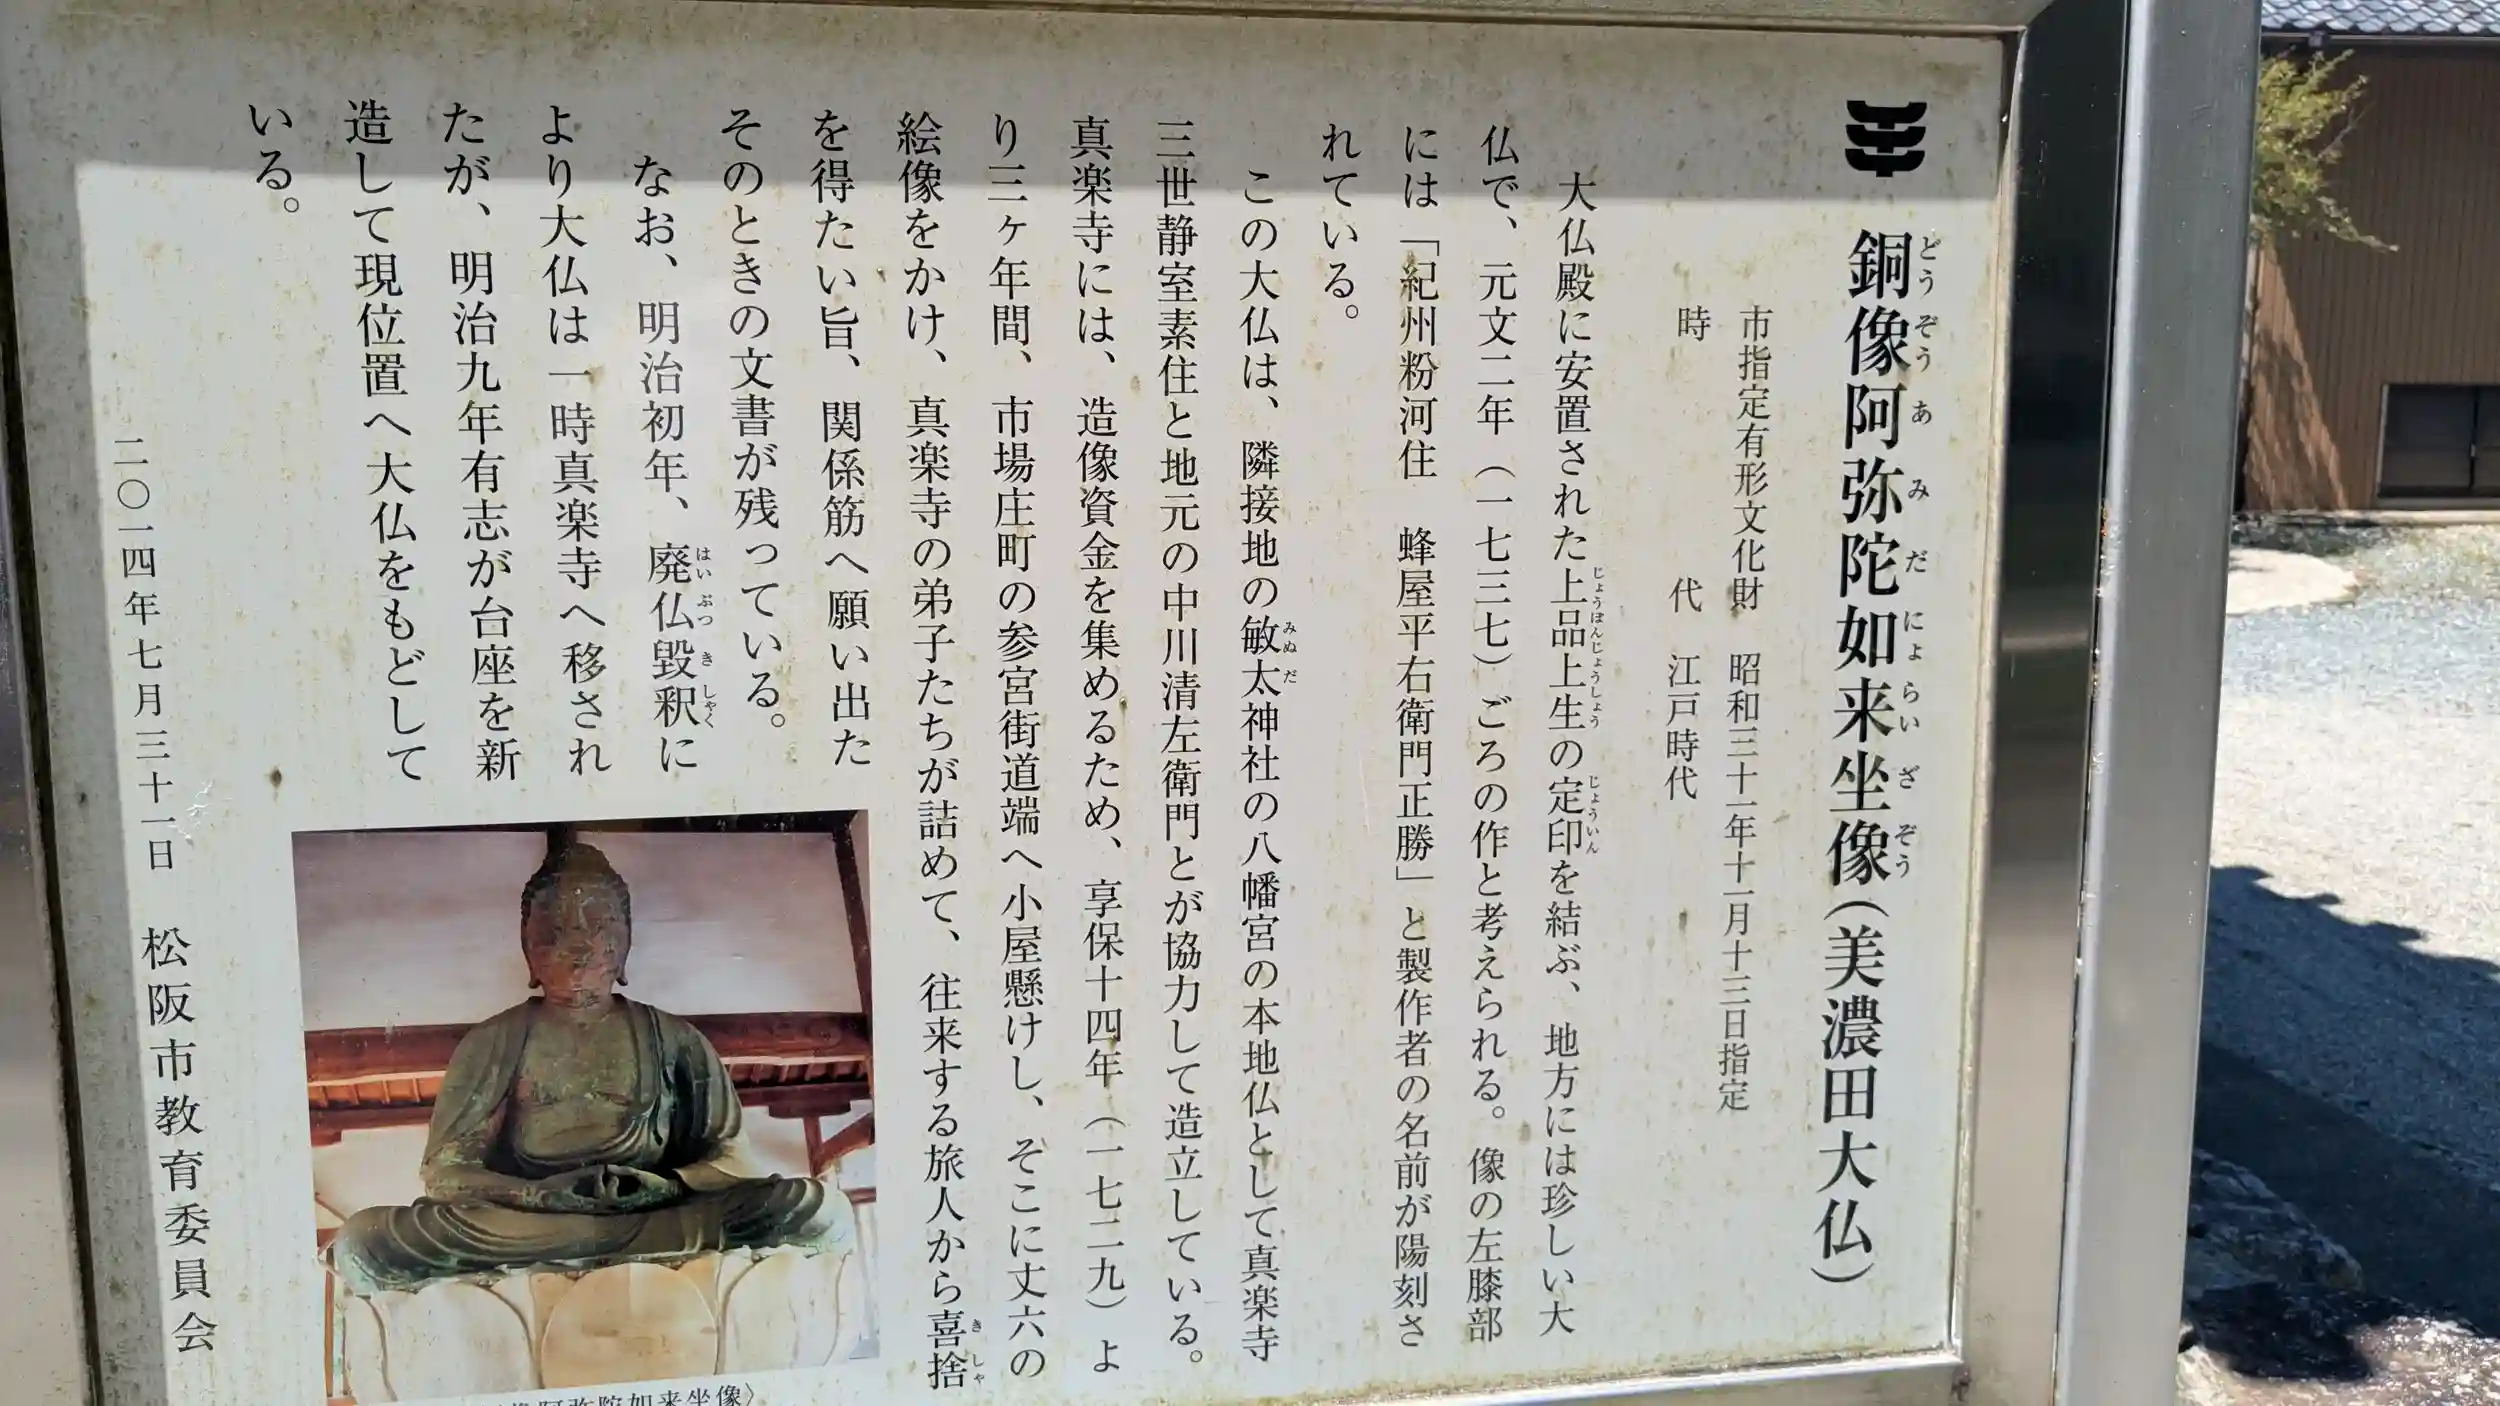 銅像阿弥陀如来坐像(美濃田大仏)
どうぞうあみだにょらいざぞう
市指定有形文化財 昭和三十一年十一月十三日指定
時代 江戸時代
大仏殿に安置された上品上生の定印を結ぶ、地方には珍しい大
じょうぼんじょうしょう じょういん
仏で、元文二年(一七三七)ごろの作と考えられる。像の左膝部
には「紀州粉河住 蜂屋平右衛門正勝」と製作者の名前が陽刻さ
れている。
この大仏は、隣接地の敏太神社の八幡宮の本地仏として真楽寺
みぬだ
三世静室素住と地元の中川清左衛門とが協力して造立している。
真楽寺には、造像資金を集めるため、享保十四年(一七二九)よ
り三ヶ年間、市場庄町の参宮街道端へ小屋懸けし、そこに丈六の
絵像をかけ、真楽寺の弟子たちが詰めて、往来する旅人から喜捨
きしゃ
を得たい旨、関係筋へ願い出た
そのときの文書が残っている。
なお、明治初年、廃仏毀釈に
はいぶつきしゃく
より大仏は一時真楽寺へ移され
たが、明治九年有志が台座を新
造して現位置へ大仏をもどして
いる。
二〇一四年七月三十一日 松阪市教育委員会
像阿弥陀如来坐像〉